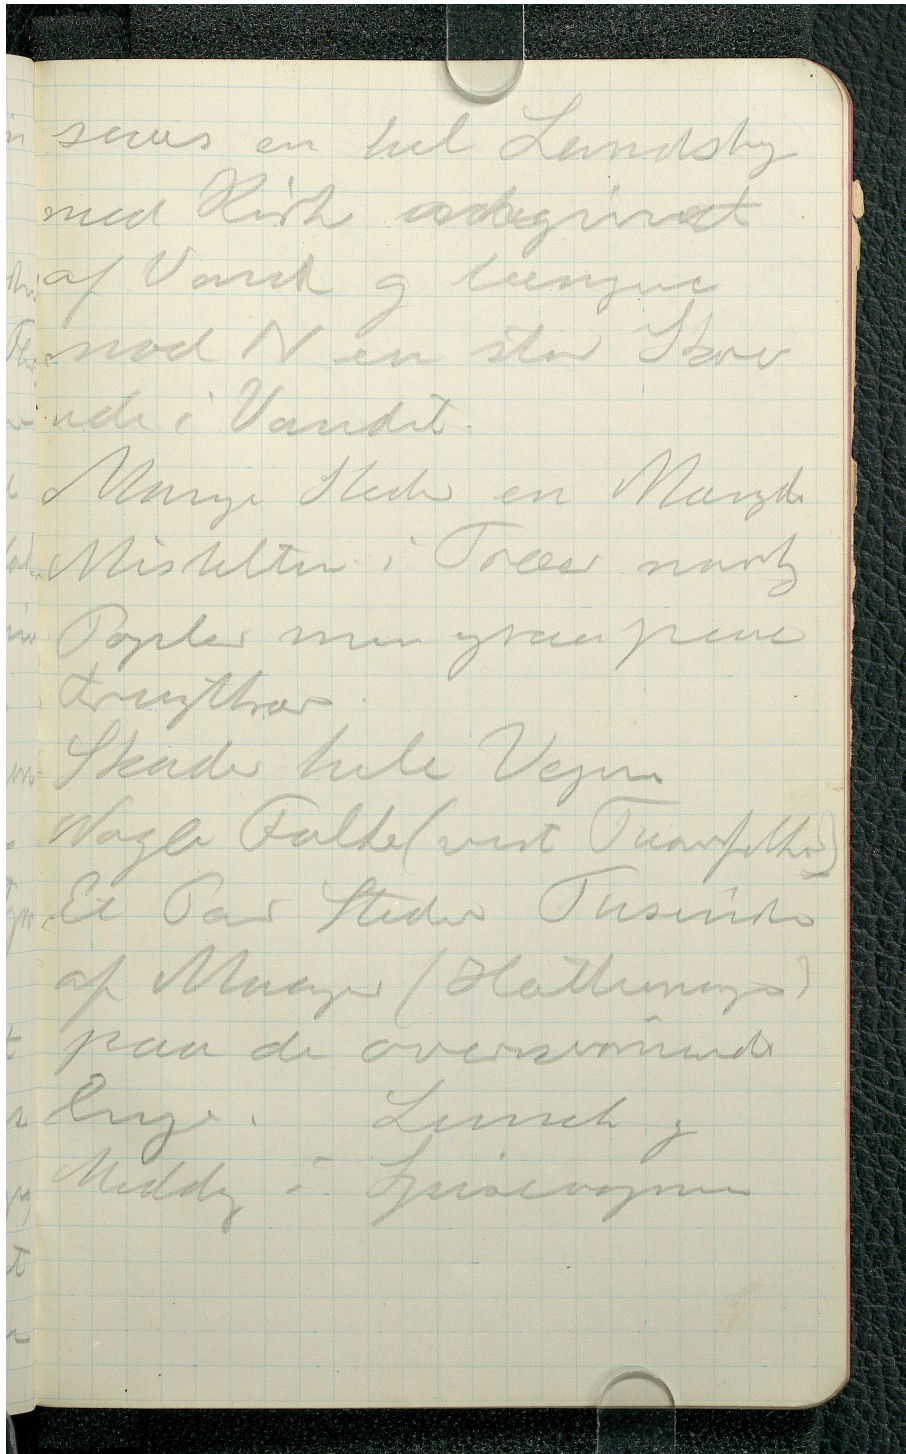 saaes en hel Landsby
med Kirke omgivet
af Vand og længere
mod N en stor Skov
ude i Vandet.
Mange Steder en Mængde
Mistelten i Træer navnlig
Popler men ogsaa paa
Frugttræer.
Skader hele Vejen
Nogle Falke (vist Taarnfalke)
Et Par Steder Tusinder
af Maager (Hættemaager)
paa de oversvømmede
Enge. Lunch og
Middag i Spisevognen